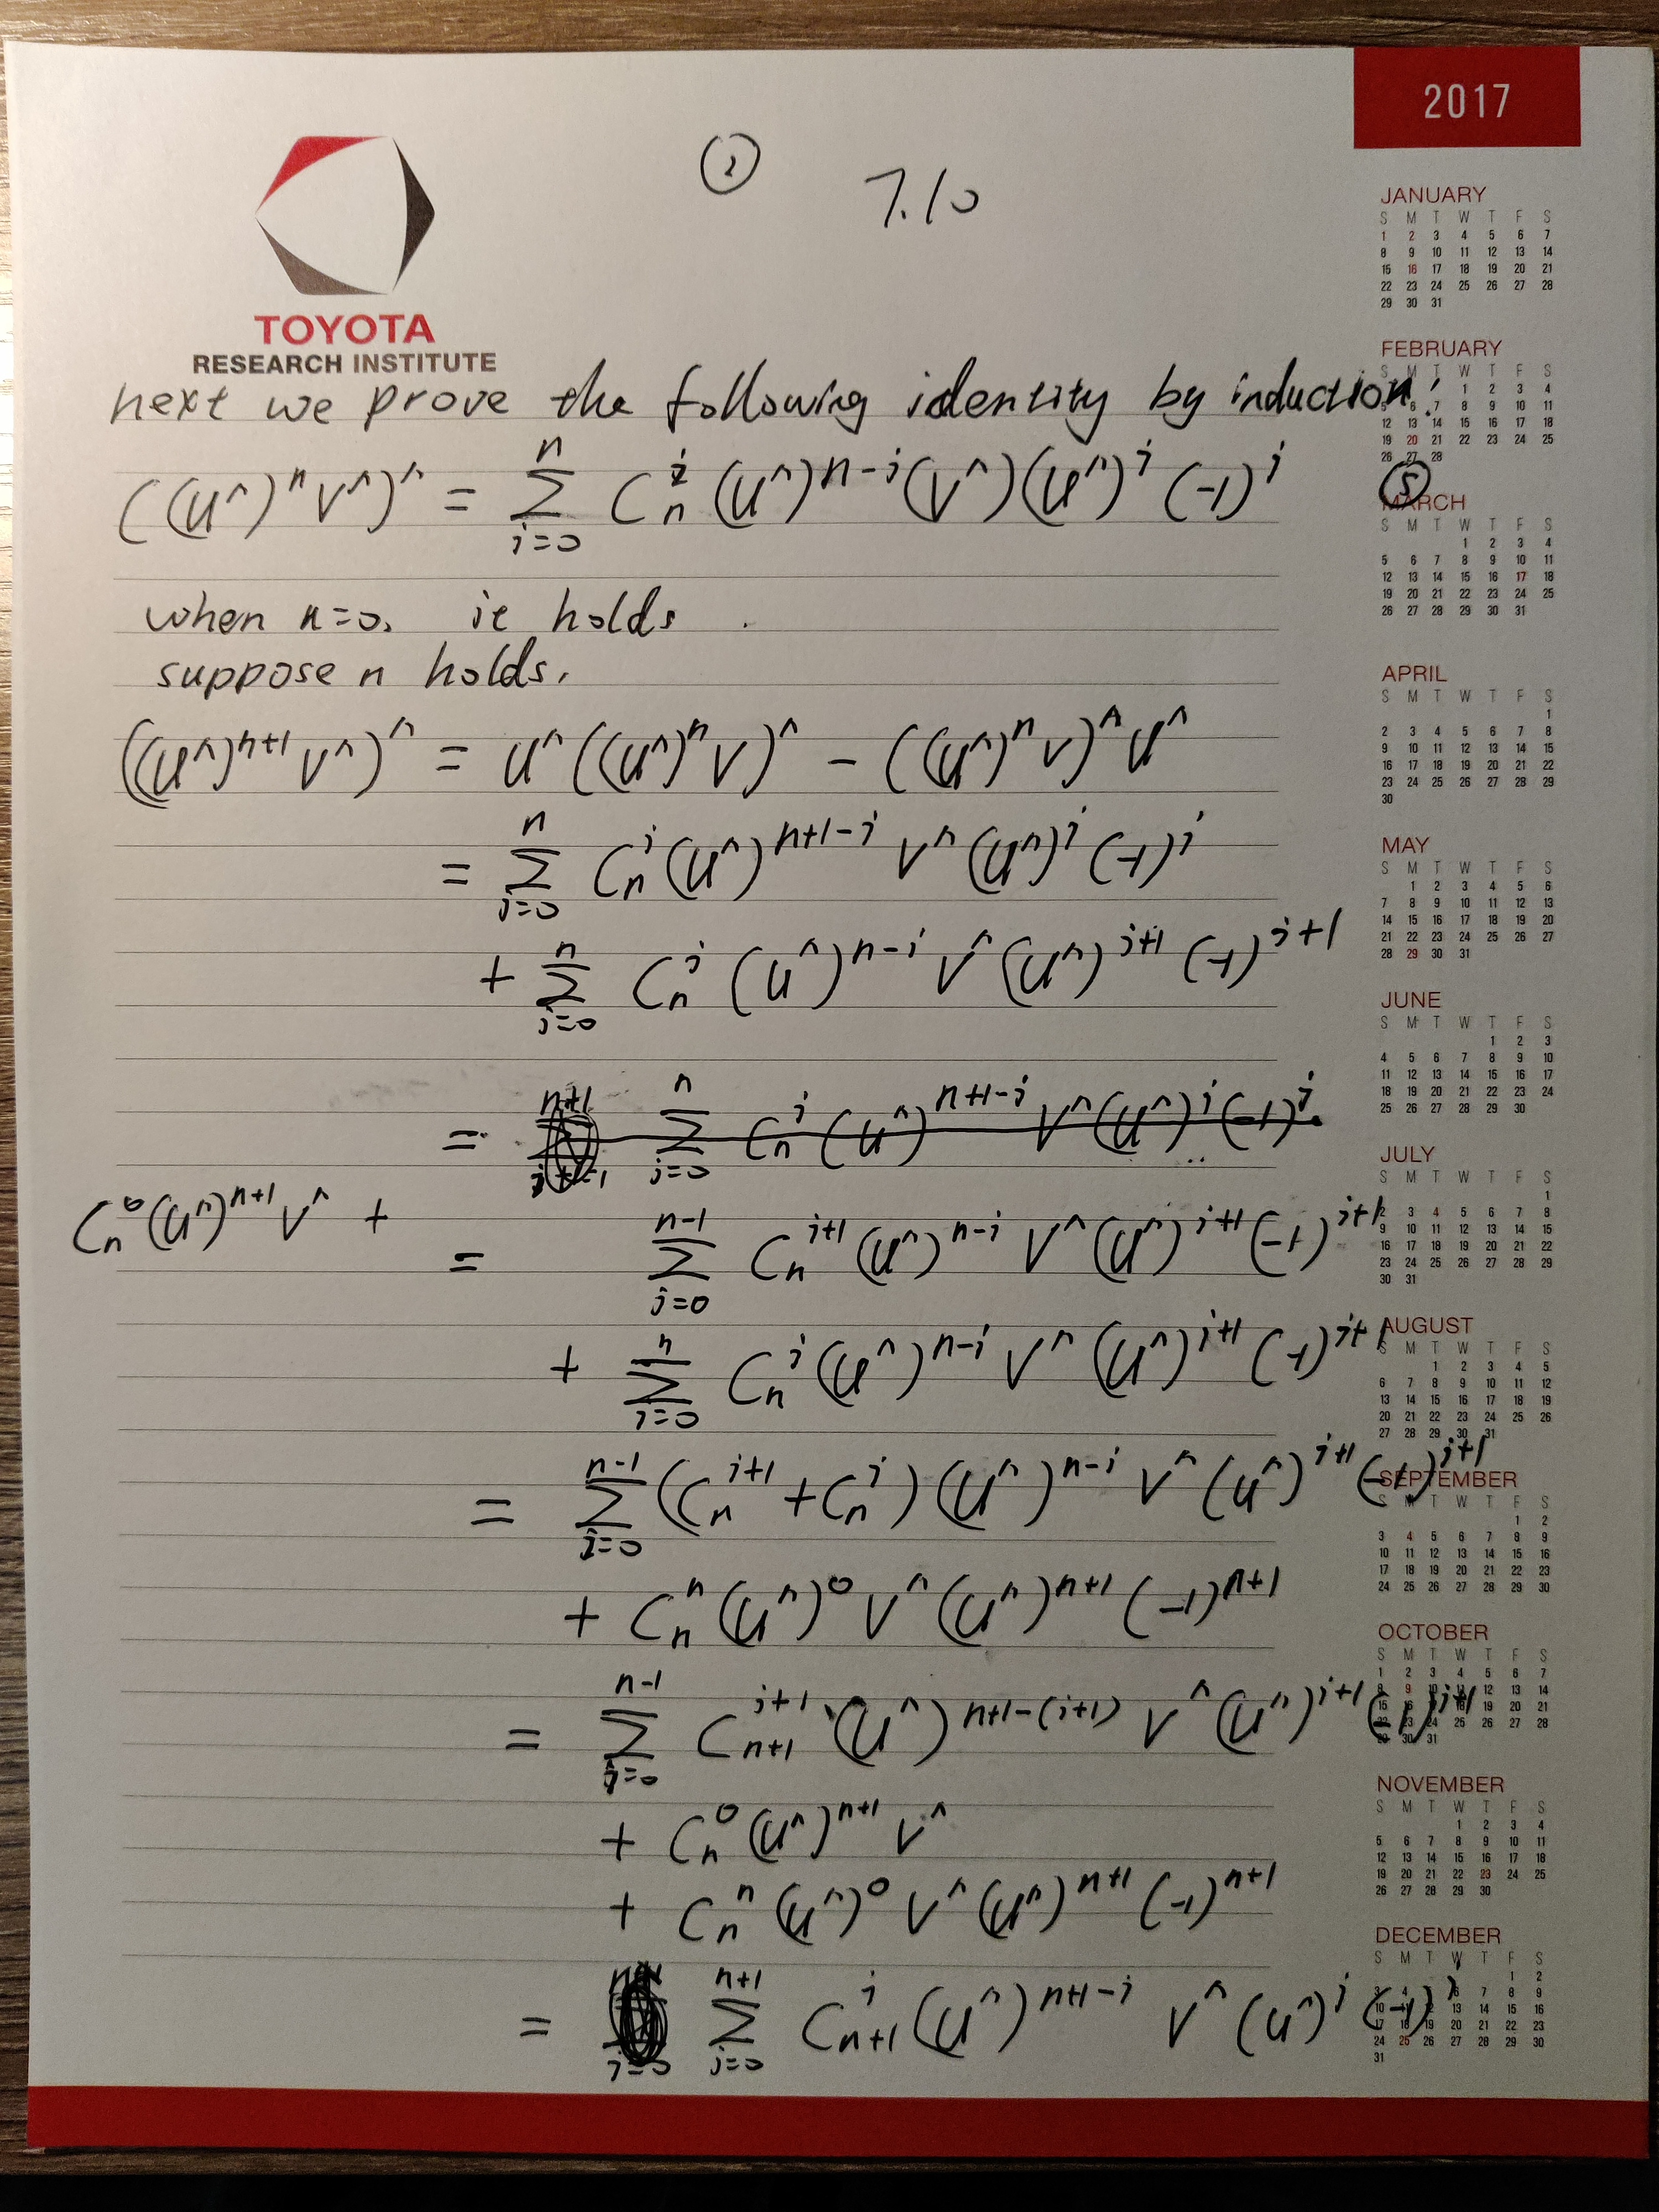 2017
② 7.10
TOYOTA
RESEARCH INSTITUTE
next we prove the following identity by induction:
((u^)^n v^)^ = Σ_{i=0}^{n} C_n^i (u^)^{n-i} (v^) (u^)^i (-1)^i ⑤
when n=0, it holds.
suppose n holds,
((u^)^{n+1} v^)^ = u^ ((u^)^n v)^ - ((u^)^n v)^ u^
= Σ_{i=0}^{n} C_n^i (u^)^{n+1-i} v^ (u^)^i (-1)^i
+ Σ_{i=0}^{n} C_n^i (u^)^{n-i} v^ (u^)^{i+1} (-1)^{i+1}
= Σ_{i=0}^{n} C_n^i (u^)^{n+1-i} v^ (u^)^i (-1)^i
C_n^0 (u^)^{n+1} v^ +
= Σ_{i=0}^{n-1} C_n^{i+1} (u^)^{n-i} v^ (u^)^{i+1} (-1)^{i+1}
+ Σ_{i=0}^{n} C_n^i (u^)^{n-i} v^ (u^)^{i+1} (-1)^{i+1}
= Σ_{i=0}^{n-1} (C_n^{i+1} + C_n^i) (u^)^{n-i} v^ (u^)^{i+1} (-1)^{i+1}
+ C_n^n (u^)^0 v^ (u^)^{n+1} (-1)^{n+1}
= Σ_{i=0}^{n-1} C_{n+1}^{i+1} (u^)^{n+1-(i+1)} v^ (u^)^{i+1} (-1)^{i+1}
+ C_n^0 (u^)^{n+1} v^
+ C_n^n (u^)^0 v^ (u^)^{n+1} (-1)^{n+1}
= Σ_{i=0}^{n+1} C_{n+1}^i (u^)^{n+1-i} v^ (u^)^i (-1)^i
JANUARY
S M T W T F S
1 2 3 4 5 6 7
8 9 10 11 12 13 14
15 16 17 18 19 20 21
22 23 24 25 26 27 28
29 30 31
FEBRUARY
1 2 3 4
6 7 8 9 10 11
12 13 14 15 16 17 18
19 20 21 22 23 24 25
26 27 28
MARCH
S M T W T F S
1 2 3 4
5 6 7 8 9 10 11
12 13 14 15 16 17 18
19 20 21 22 23 24 25
26 27 28 29 30 31
APRIL
S M T W T F S
1
2 3 4 5 6 7 8
9 10 11 12 13 14 15
16 17 18 19 20 21 22
23 24 25 26 27 28 29
30
MAY
S M T W T F S
1 2 3 4 5 6
7 8 9 10 11 12 13
14 15 16 17 18 19 20
21 22 23 24 25 26 27
28 29 30 31
JUNE
S M T W T F S
1 2 3
4 5 6 7 8 9 10
11 12 13 14 15 16 17
18 19 20 21 22 23 24
25 26 27 28 29 30
JULY
S M T W T F S
1
2 3 4 5 6 7 8
9 10 11 12 13 14 15
16 17 18 19 20 21 22
23 24 25 26 27 28 29
30 31
AUGUST
S M T W T F S
1 2 3 4 5
6 7 8 9 10 11 12
13 14 15 16 17 18 19
20 21 22 23 24 25 26
27 28 29 30 31
SEPTEMBER
S M T W T F S
1 2
3 4 5 6 7 8 9
10 11 12 13 14 15 16
17 18 19 20 21 22 23
24 25 26 27 28 29 30
OCTOBER
S M T W T F S
1 2 3 4 5 6 7
8 9 10 11 12 13 14
15 16 17 18 19 20 21
24 25 26 27 28
30 31
NOVEMBER
S M T W T F S
1 2 3 4
5 6 7 8 9 10 11
12 13 14 15 16 17 18
19 20 21 22 23 24 25
26 27 28 29 30
DECEMBER
S M T W T F S
1 2
3 4 5 6 7 8 9
10 11 12 13 14 15 16
17 18 19 20 21 22 23
24 25 26 27 28 29 30
31